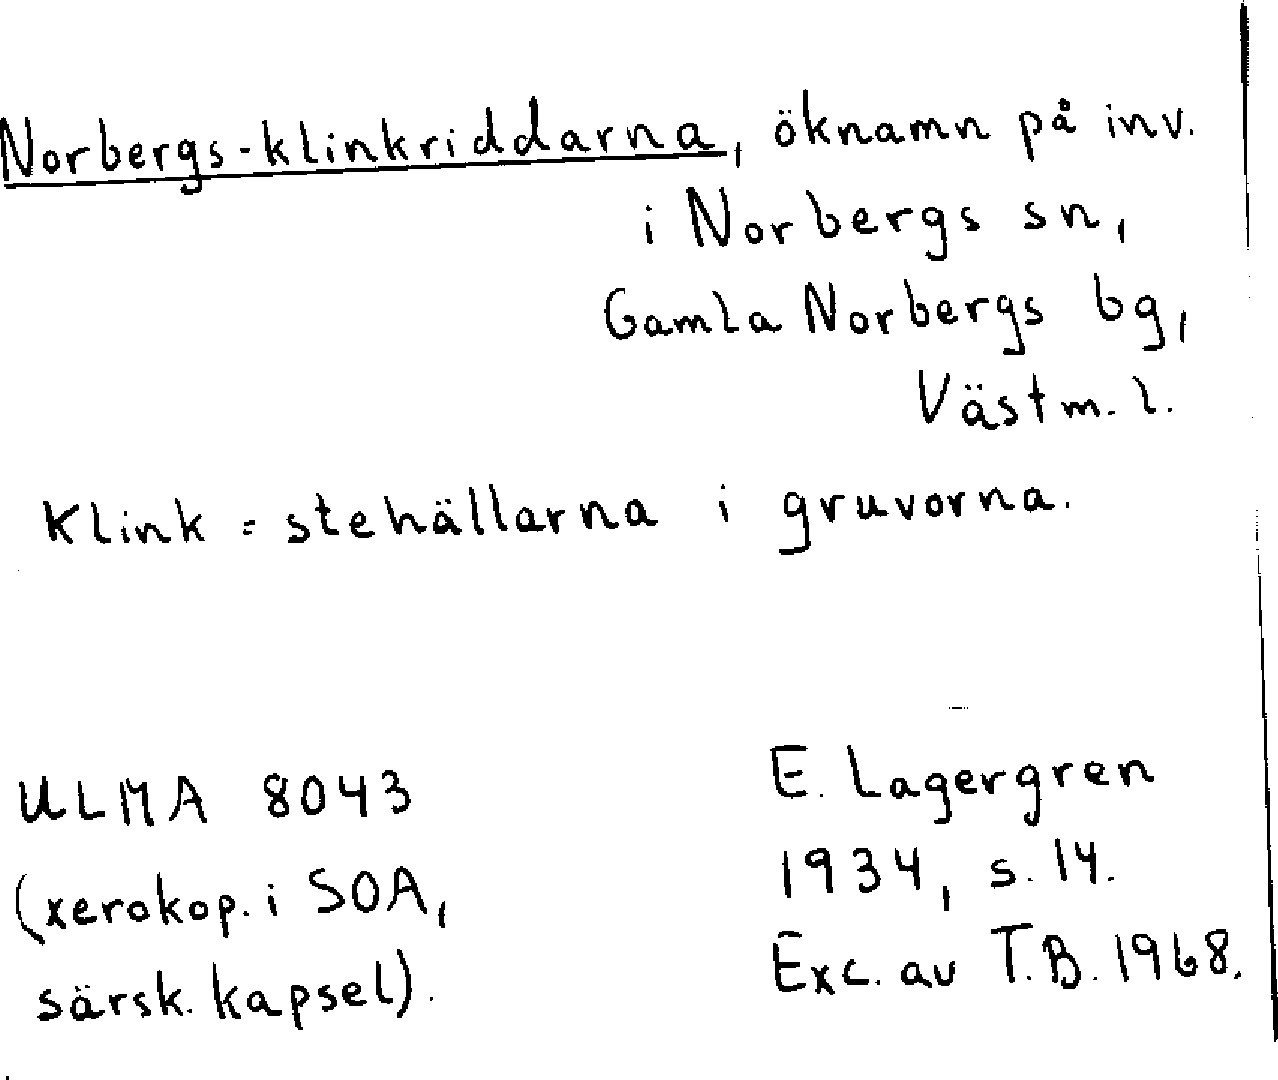 Norbergs-klinkriddarna, öknamn på inv.
i Norbergs sn,
Gamla Norbergs bg,
Västm. l.
Klink = stehällarna i gruvorna.
ULMA 8043
(xerokop. i SOA,
särsk. kapsel).
E. Lagergren
1934, s. 14.
Exc. av T.B. 1968.